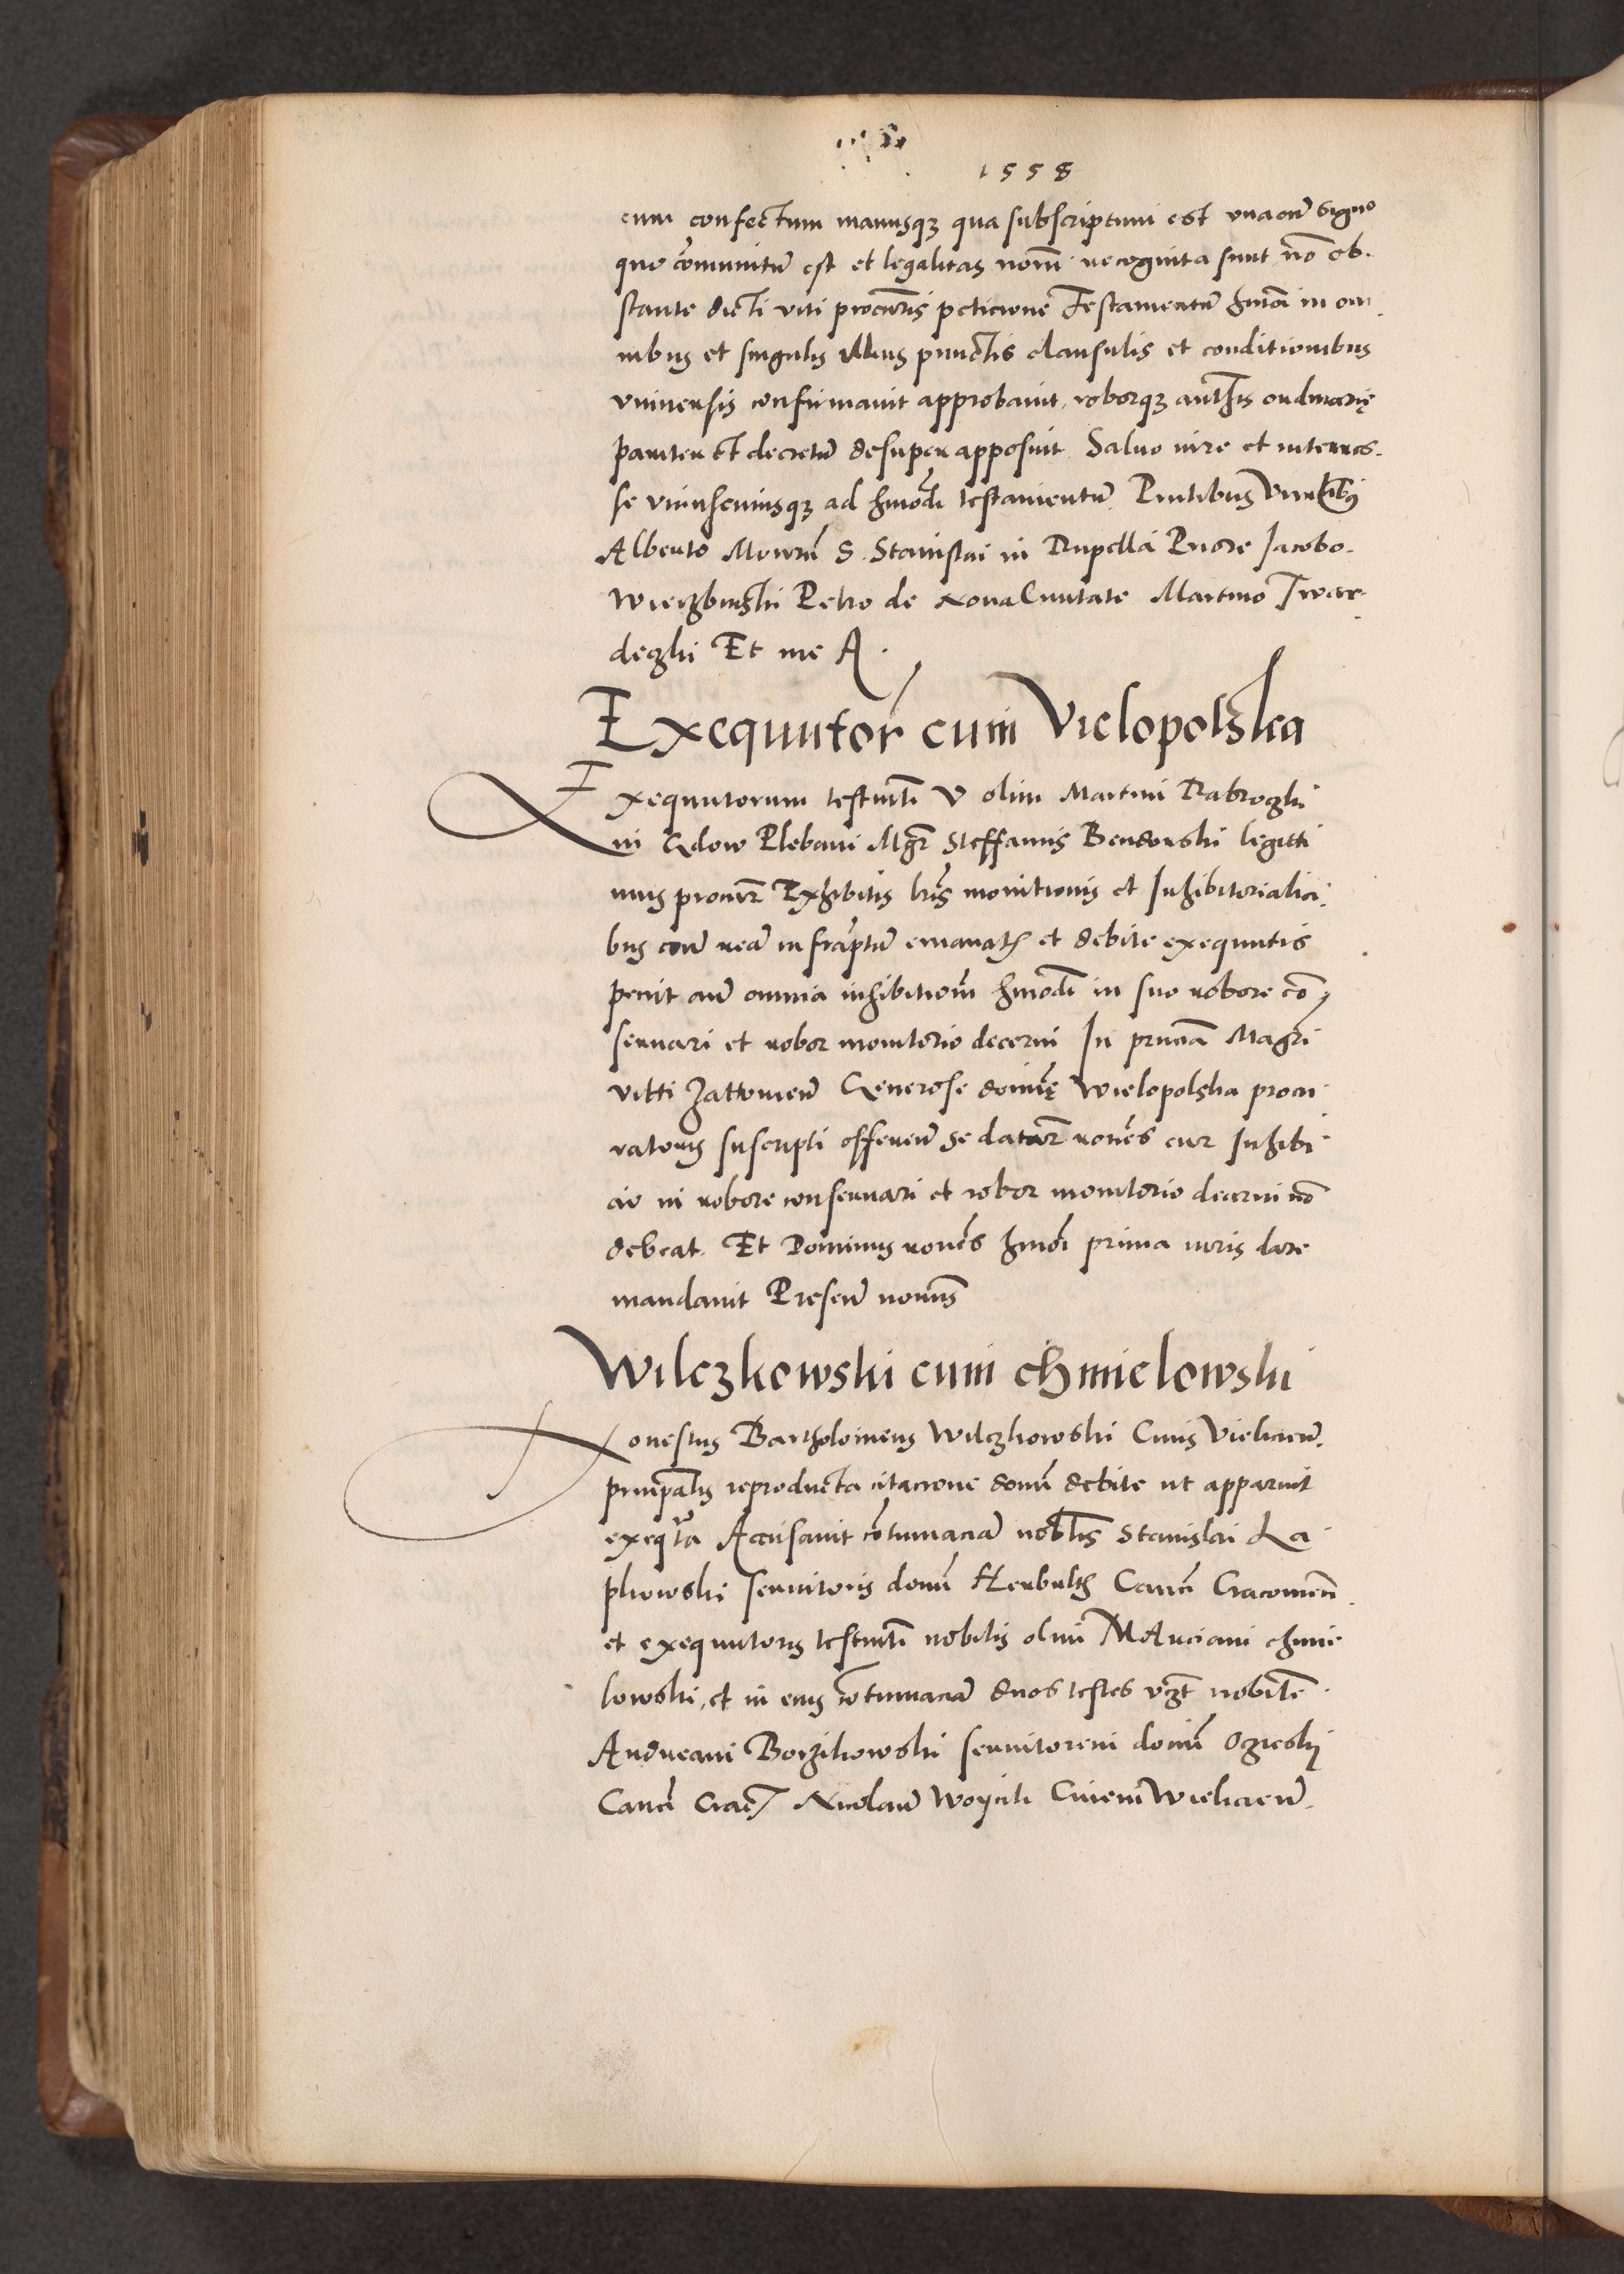 1558
cum confectum manusq3 qua subscriptum est vnacũ signo
quo cõmunitũ est et legalitas norȷ̃ recognita sunt nõ ob.
stante dicti viti procuris peticione Testamentũ hmõi in om
nibus et singulis illius punctis clausulis et conditionibus
vniuersis confirmauit approbauit roborq3 authtis ordinarię
pariter et decretũ desuper apposuit Saluo iure et interes.
se vniuscuiusq3 ad hmõdi testamentũ. Pntibus Vnrlibus
Alberto S. Stanislai in Rupella Priore Jacobo.
Wierzbinski Petro de Noua Ciuitate Martino Twar
deczki Et me A.
Exequutor cum Vielopolska
Exequutorum testmti V olim Martini Dabroczki
in Gdow Plebani Mgr Steffanus Bendonski legitti
mus procur Exhibitis lris monitionis et Inhibitorialici
bus cum rea infrascptũ emanatis et debite exequutis
petiit cum omnia inhibitionem hmõdi in suo robore cõ
seruari et robor monitorio decerni In pnciã Magri
vitti Zattorien Generose domine Wielopolska procu
ratoris suscripti offeren se datur rones cur Inhibi
cio in robore conseruari et robor monitorio decerni nõ
debeat. Et Dominus rones hmõi prima iuris dare
mandauit Presen nouus
Wilczkowski cum chmielowski
Honestus Bartholomeus Wilczkowski Ciuis Vielicien.
principalis reproducta citacione domi debite ut apparuit
exeqta Accusauit cõtumaciã nobilis Stanislai La
pkowski seruitoris domi Herbulth Canci Cracouien
et exequutoris testmti nobilis olim Marciani chmie
lowski, et in eius cõtumaciã duos testes vczt nobile
Andream Borzikowski seruitorem domi Ozieski
Canci Crac Nicolaũ Woycik Ciuem Wielicien.